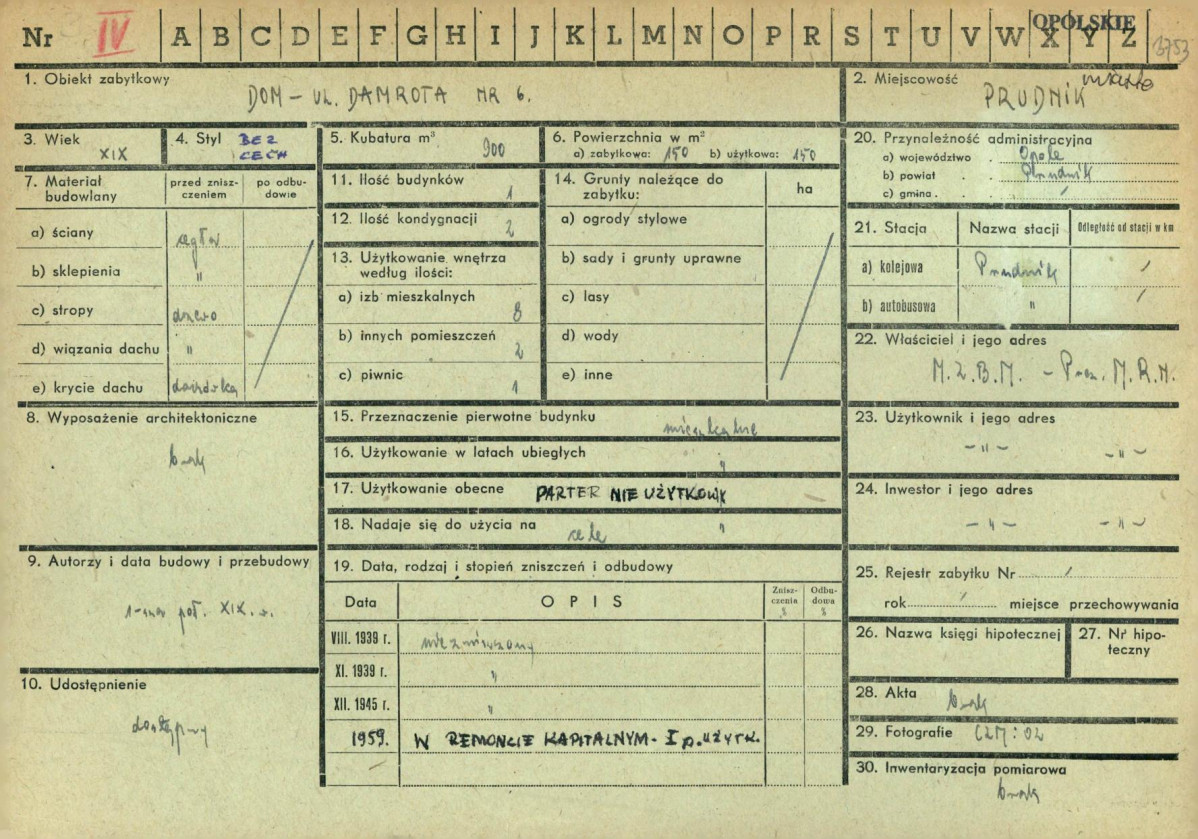 Nr IV A B C D E F G H I J K L M N O P R S T U V W X Y Z OPOLSKIE 3753
1. Obiekt zabytkowy
DOM – UL. DAMROTA NR 6.
2. Miejscowość miasto
PRUDNIK
3. Wiek
XIX
4. Styl BEZ
CECH
5. Kubatura m³
900
6. Powierzchnia w m²
a) zabytkowa: 150 b) użytkowa: 150
20. Przynależność administracyjna
a) województwo Opole
b) powiat Prudnik
c) gmina /
7. Materiał budowlany
przed zniszczeniem
po odbudowie
a) ściany cegła
b) sklepienia "
c) stropy drzewo
d) wiązania dachu "
e) krycie dachu dachówka
11. Ilość budynków 1
12. Ilość kondygnacji 2
13. Użytkowanie wnętrza
według ilości:
a) izb mieszkalnych 8
b) innych pomieszczeń 2
c) piwnic 1
14. Grunty należące do
zabytku:
ha
a) ogrody stylowe
b) sady i grunty uprawne
c) lasy
d) wody
e) inne
21. Stacja Nazwa stacji Odległość od stacji w km
a) kolejowa Prudnik /
b) autobusowa " /
22. Właściciel i jego adres
M.Z.B.M. – Prez. M.R.N.
8. Wyposażenie architektoniczne
brak
15. Przeznaczenie pierwotne budynku
mieszkalne
16. Użytkowanie w latach ubiegłych "
17. Użytkowanie obecne PARTER NIE UŻYTKOW.
18. Nadaje się do użycia na cele "
23. Użytkownik i jego adres
– " – – " –
24. Inwestor i jego adres
– " – – " –
9. Autorzy i data budowy i przebudowy
1-sza poł. XIX.w.
19. Data, rodzaj i stopień zniszczeń i odbudowy
Data OPIS Zniszczenia % Odbudowa %
VIII. 1939 r. niezniszczony
XI. 1939 r. "
XII. 1945 r. "
1959. W REMONCIE KAPITALNYM - I p. UŻYTK.
25. Rejestr zabytku Nr /
rok / miejsce przechowywania
26. Nazwa księgi hipotecznej
27. Nr hipoteczny
10. Udostępnienie
dostępny
28. Akta
brak
29. Fotografie
30. Inwentaryzacja pomiarowa
brak